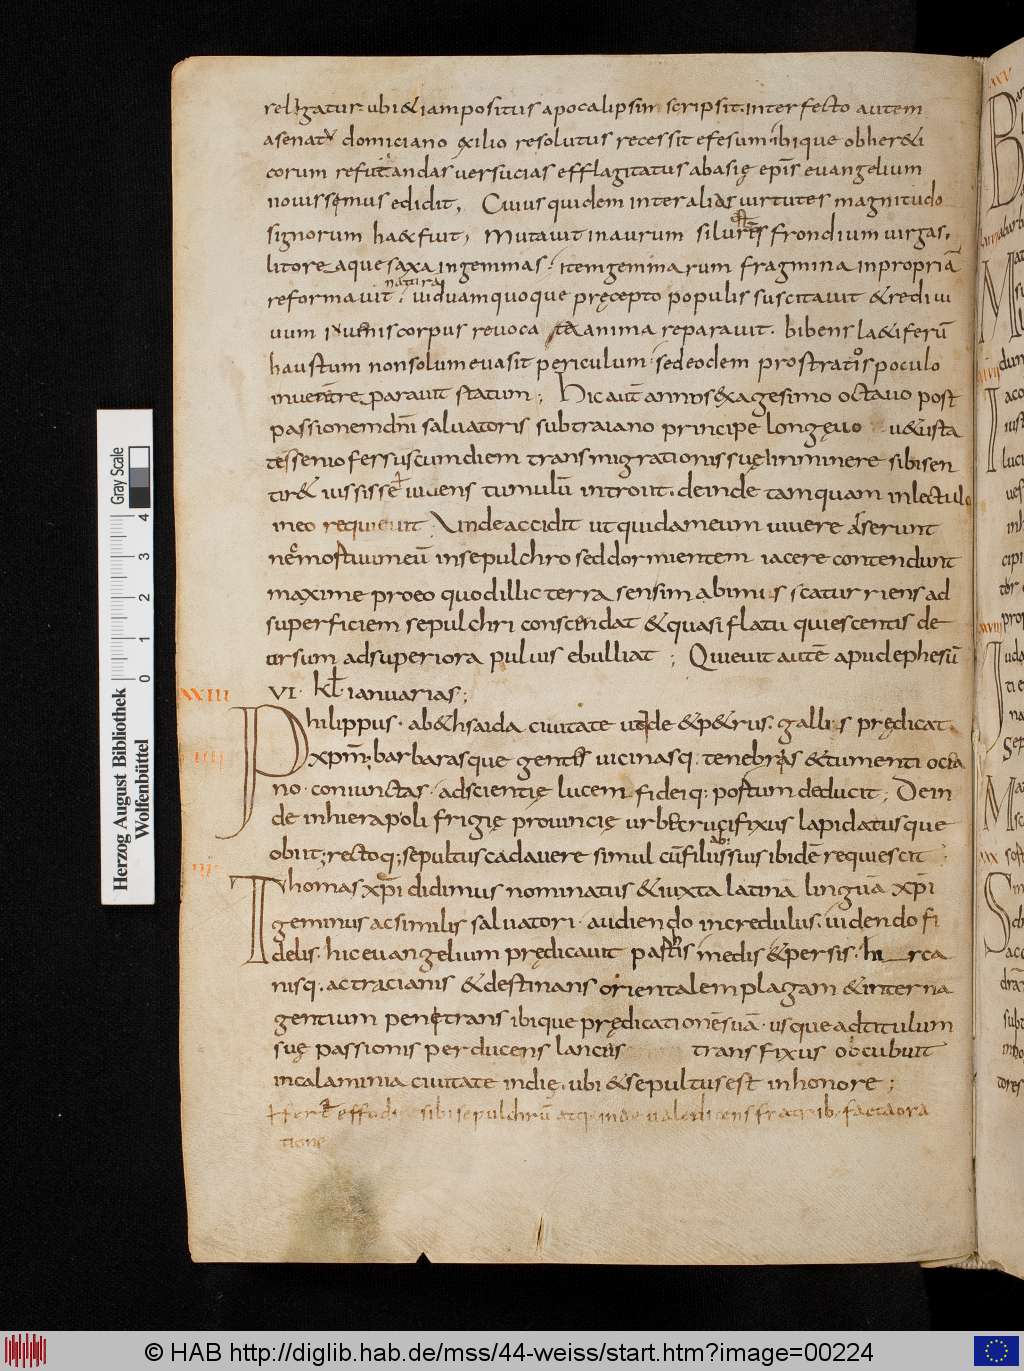 religatur ubi & iam positus apocalipsin scripsit. interfecto autem
a senatu domiciano exilio resolutus recessit efesum ibique ob her&i
corum refutandas versucias efflagitatus ab asię ep̄is evangelium
novissimus edidit, Cuius quidem inter alias virtutes magnitudo
signorum haec fuit, Mutavit in aurum silvestres frondium virgas,
litoreaque saxa in gemmas. item gemmarum fragmina in propriā
natura
reformavit. viduam quoque pręcepto populi suscitavit & redivi
vum iuvenis corpus revocata anima reparavit. bibens l&iferū
haustum non solum evasit periculum. sed eodem prostratos poculo
in vitę reparavit statum; Hic aūt annos sexagesimo octavo post
passionem dn̄i salvatoris sub traiano principe longęvo v&usta
te fessus cum diem transmigrationis suę inminere sibi sen
tir& iussisse vivens tumulū introiit. deinde tamquam in lectulo
meo requievit Unde accidit ut quidam eum vivere asserunt
nec mortuum eū in sepulchro sed dormientem iacere contendunt
maxime pro eo quod illic terra sensim ab imis scaturriens ad
superficiem sepulchri conscendat & quasi flatu quiescentis de
orsum ad superiora pulvis ebulliat; Quievit autē apud ephesū
XXIII VI. kl. ianuarias;
Philippus. a b&hsaida civitate unde & p&rus. gallis prędicat
IIII xpm̄; barbarasque gentes vicinasq; tenebris & tumenti ocia
no. coniunctas. ad scientię lucem fideiq; portum deducit; Dein
de in hierapoli frigię provincię urbe crucifixus lapidatusque
obiit; rectoq; sepultus cadavere simul cū filiabus suis ibidē requiescit
III Thomas xp̄i didimus nominatus & iuxta latinā linguā xp̄i
geminus ac similis salvatori. audiendo incredulus. videndo fi
delis. hic evangelium prędicavit partis medis & persis. hirca
nisq. ac tracianis & destinans orientalem plagam & interna
gentium penetrans ibique prędicationē suā. usque ad titulum
suę passionis perducens lanciis transfixus occubuit
in calaminia civitate indię, ubi & sepultus est in honore;
sibi sepulchrū atq; valedicens fratrib; facta ora
tione
Herzog August Bibliothek
Wolfenbüttel
Gray Scale
0 1 2 3 4
© HAB http://diglib.hab.de/mss/44-weiss/start.htm?image=00224